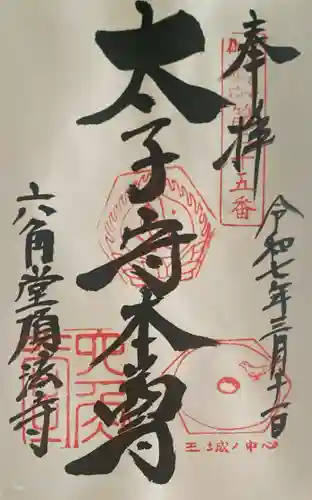 奉拝
令和七年三月十一日
太子守本尊
六角堂頂法寺
五番
王城ノ中心